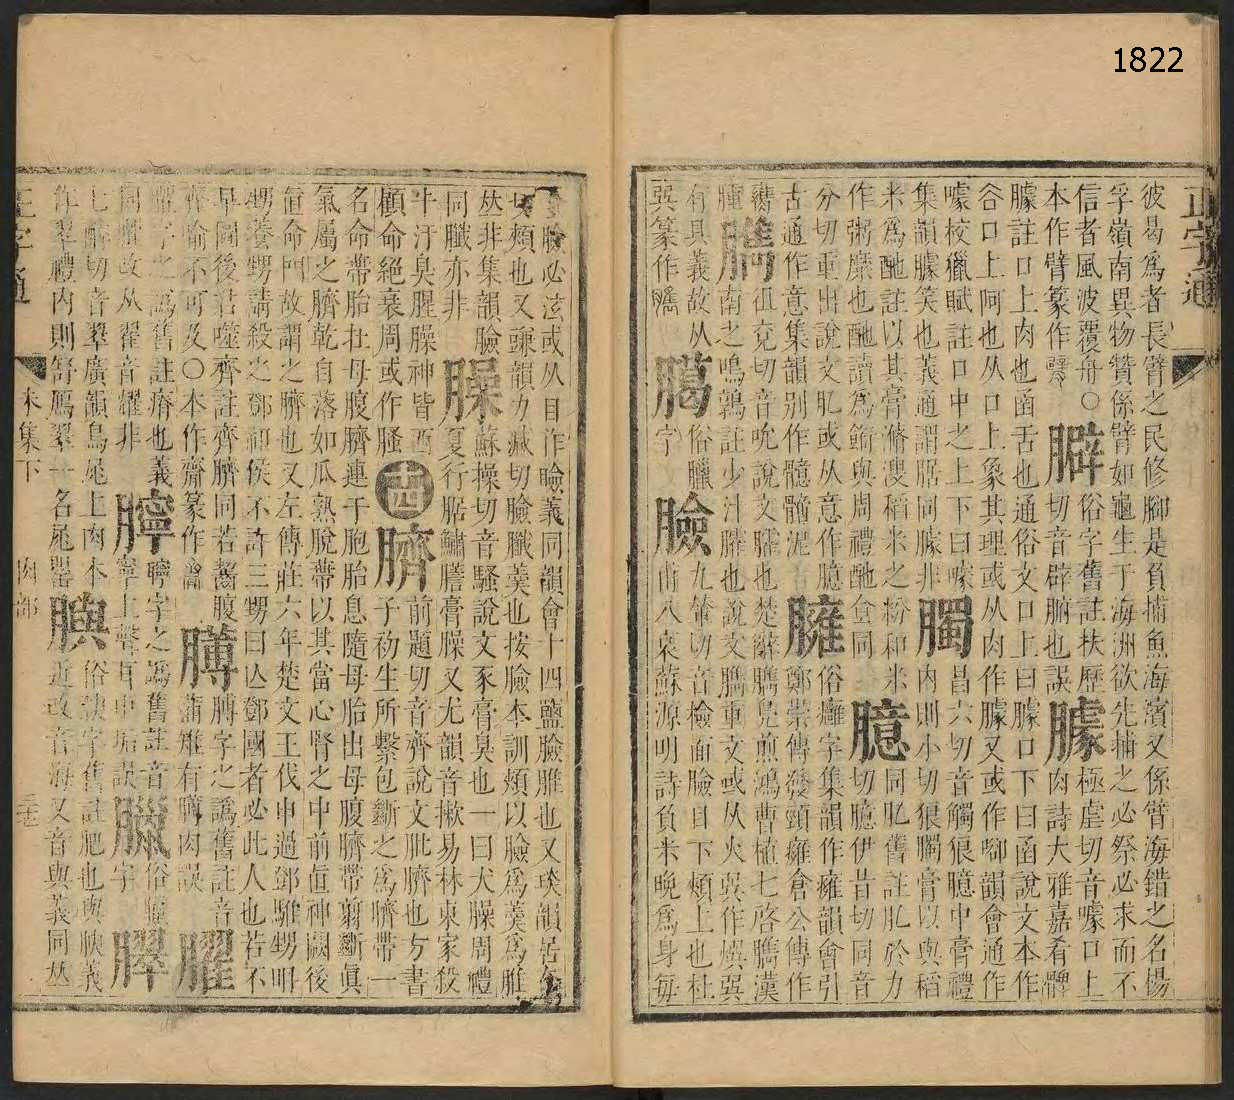 1822
正字通
彼曷爲者長臂之民修腳是負捕魚海濱又係臂海錯之名楊
孚嶺南異物贊係臂如龜生于海洲欲先捕之必祭必求而不
信者風波覆舟○臂俗字舊註扶歷極虐切音噱口上
本作臂篆作臂 臄切音辟腑也誤臄肉詩大雅嘉肴脾
臄註口上肉也函舌也通俗文口上曰臄口下曰函說文本作
谷口上阿也从口上象其理或从肉作臄又或作㖸韻會通作
噱校獵賦註口中之上下曰噱臅昌六切音觸狼臆中膏禮
集韻臄笑也義通謂腒同臄非 內則小切狼臅膏以與稻
米爲酏註以其膏滫溲稻米之粉和米臆同肊舊註肊於力
作粥糜也酏讀爲飾與周禮酏食同 切臆伊昔切同音
分切重出說文肊或从意作臆臃俗癰字集韻作癕韻會引
古通作意集韻別作醷髓泥 鄭崇傳發頸癕倉公傳作
臇徂兗切音吮說文臛也楚辭臇鳧煎鴻曹植七啓臇漢
南之鳴鶉註少汁臛也說文臇重文或从火㢲作㷷㢲
有具義故从俗臘九輦切音檢面臉目下頰上也杜
㢲篆作臇 臈字 臉甫八哀蘇源明詩負米晚爲身每
臉必泫或从目作瞼義同韻會十四鹽臉脽也又琰韻居奄
切頰也又豏韻力減切臉臘羹也按臉本訓頰以臉爲羹爲脽
𠀤非集韻臉臊蘇操切音騷說文豕膏臭也一曰犬臊周禮
同臘亦非 夏行腒鱐膳膏臊又尤韻音漱易林東家殺
牛汙臭腥臊神皆西 十四 臍前題切音齊說文肶臍也方書
顧命絕衰周或作臊 子初生所繫包斷之爲臍帶一
名命帶胎在母腹臍連于胞胎息隨母胎出母腹臍帶剪斷眞
氣屬之臍乾自落如瓜熟脫帶以其當心腎之中前直神闕後
直命門故謂之臍也又左傳莊六年楚文王伐申過鄧騅甥聃
甥養甥請殺之鄧祁侯不許三甥曰亾鄧國者必此人也若不
早圖後君噬齊註齊臍同若齧腹膊字之譌舊註音
齊喻不可及○本作齌篆作 蒲雉有膊肉誤 臞
臞字之譌舊註瘠也義 臑字之譌舊註音臘俗臘
同臞故从翟音耀非 寧上聲耳中垢誤 字 臎
七醉切音翠廣韻鳥尾上肉本臎俗腴字舊註肥也與腴義
作翠禮內則舒鴈翠一名尾罌 近改音海又音與義同𠀤
正字通
未集下
肉部